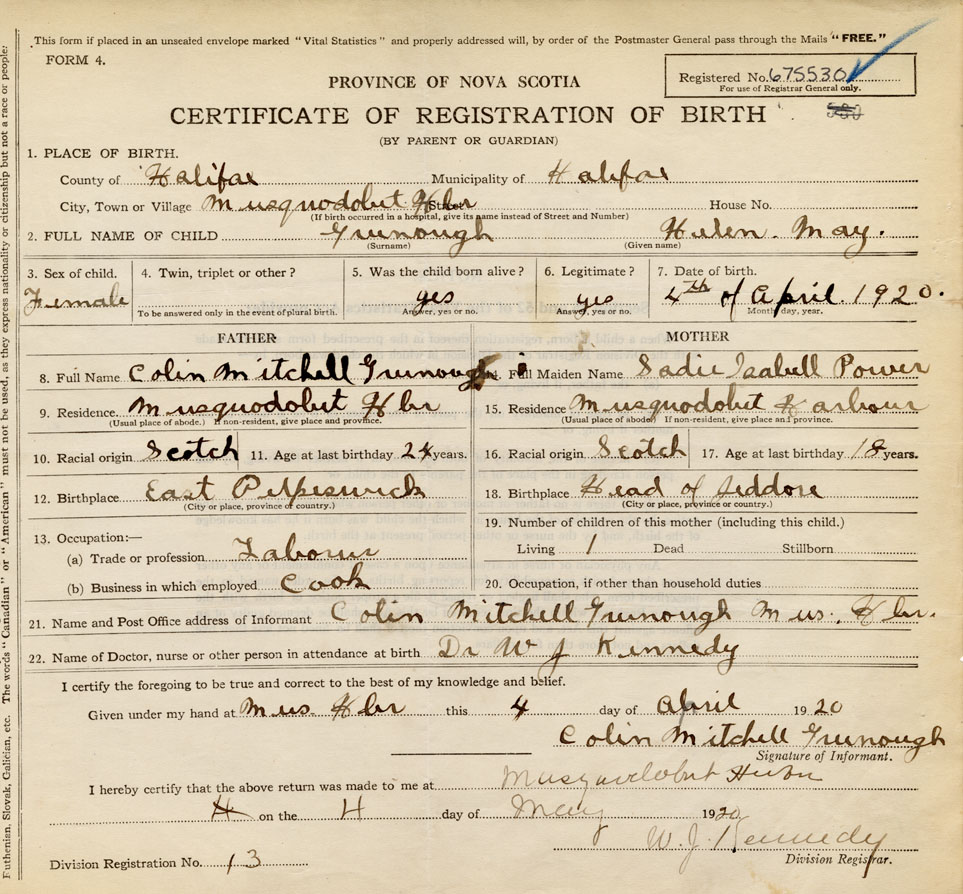 This form if placed in an unsealed envelope marked "Vital Statistics" and properly addressed will, by order of the Postmaster General pass through the Mails "FREE."
FORM 4.
Registered No. 675530
For use of Registrar General only.
PROVINCE OF NOVA SCOTIA
CERTIFICATE OF REGISTRATION OF BIRTH
(BY PARENT OR GUARDIAN)
1. PLACE OF BIRTH.
County of Halifax Municipality of Halifax
City, Town or Village Musquodobut Hbr Street House No.
(If birth occurred in a hospital, give its name instead of Street and Number)
2. FULL NAME OF CHILD Grunough Helen. May.
(Surname) (Given name)
3. Sex of child. 4. Twin, triplet or other? 5. Was the child born alive? 6. Legitimate? 7. Date of birth.
Female yes yes 4th of April. 1920.
To be answered only in the event of plural birth. Answer, yes or no. Answer, yes or no. Month, day, year.
FATHER MOTHER
8. Full Name Colin Mitchell Grunough 14. Full Maiden Name Sadie Isabell Power
9. Residence Musquodobut Hbr 15. Residence Musquodobut Harbour
(Usual place of abode.) If non-resident, give place and province. (Usual place of abode) If non-resident, give place and province.
10. Racial origin Scotch 11. Age at last birthday 24 years. 16. Racial origin Scotch 17. Age at last birthday 18 years.
12. Birthplace East Petpeswick 18. Birthplace Head of Jeddore
(City or place, province or country.) (City or place, province or country.)
13. Occupation:— 19. Number of children of this mother (including this child.)
(a) Trade or profession Labourer Living 1 Dead Stillborn
(b) Business in which employed Cook 20. Occupation, if other than household duties
21. Name and Post Office address of Informant Colin Mitchell Grunough Mus. Hbr.
22. Name of Doctor, nurse or other person in attendance at birth Dr W J Kennedy
I certify the foregoing to be true and correct to the best of my knowledge and belief.
Given under my hand at Mus Hbr this 4 day of April 1920
Colin Mitchell Grunough
Signature of Informant.
I hereby certify that the above return was made to me at Musquodobut
on the 4 day of May 1920
W. J. Kennedy
Division Registrar.
Division Registration No. 13
Ruthenian, Slovak, Galician, etc. The words "Canadian" or "American" must not be used, as they express nationality or citizenship but not a race or people.